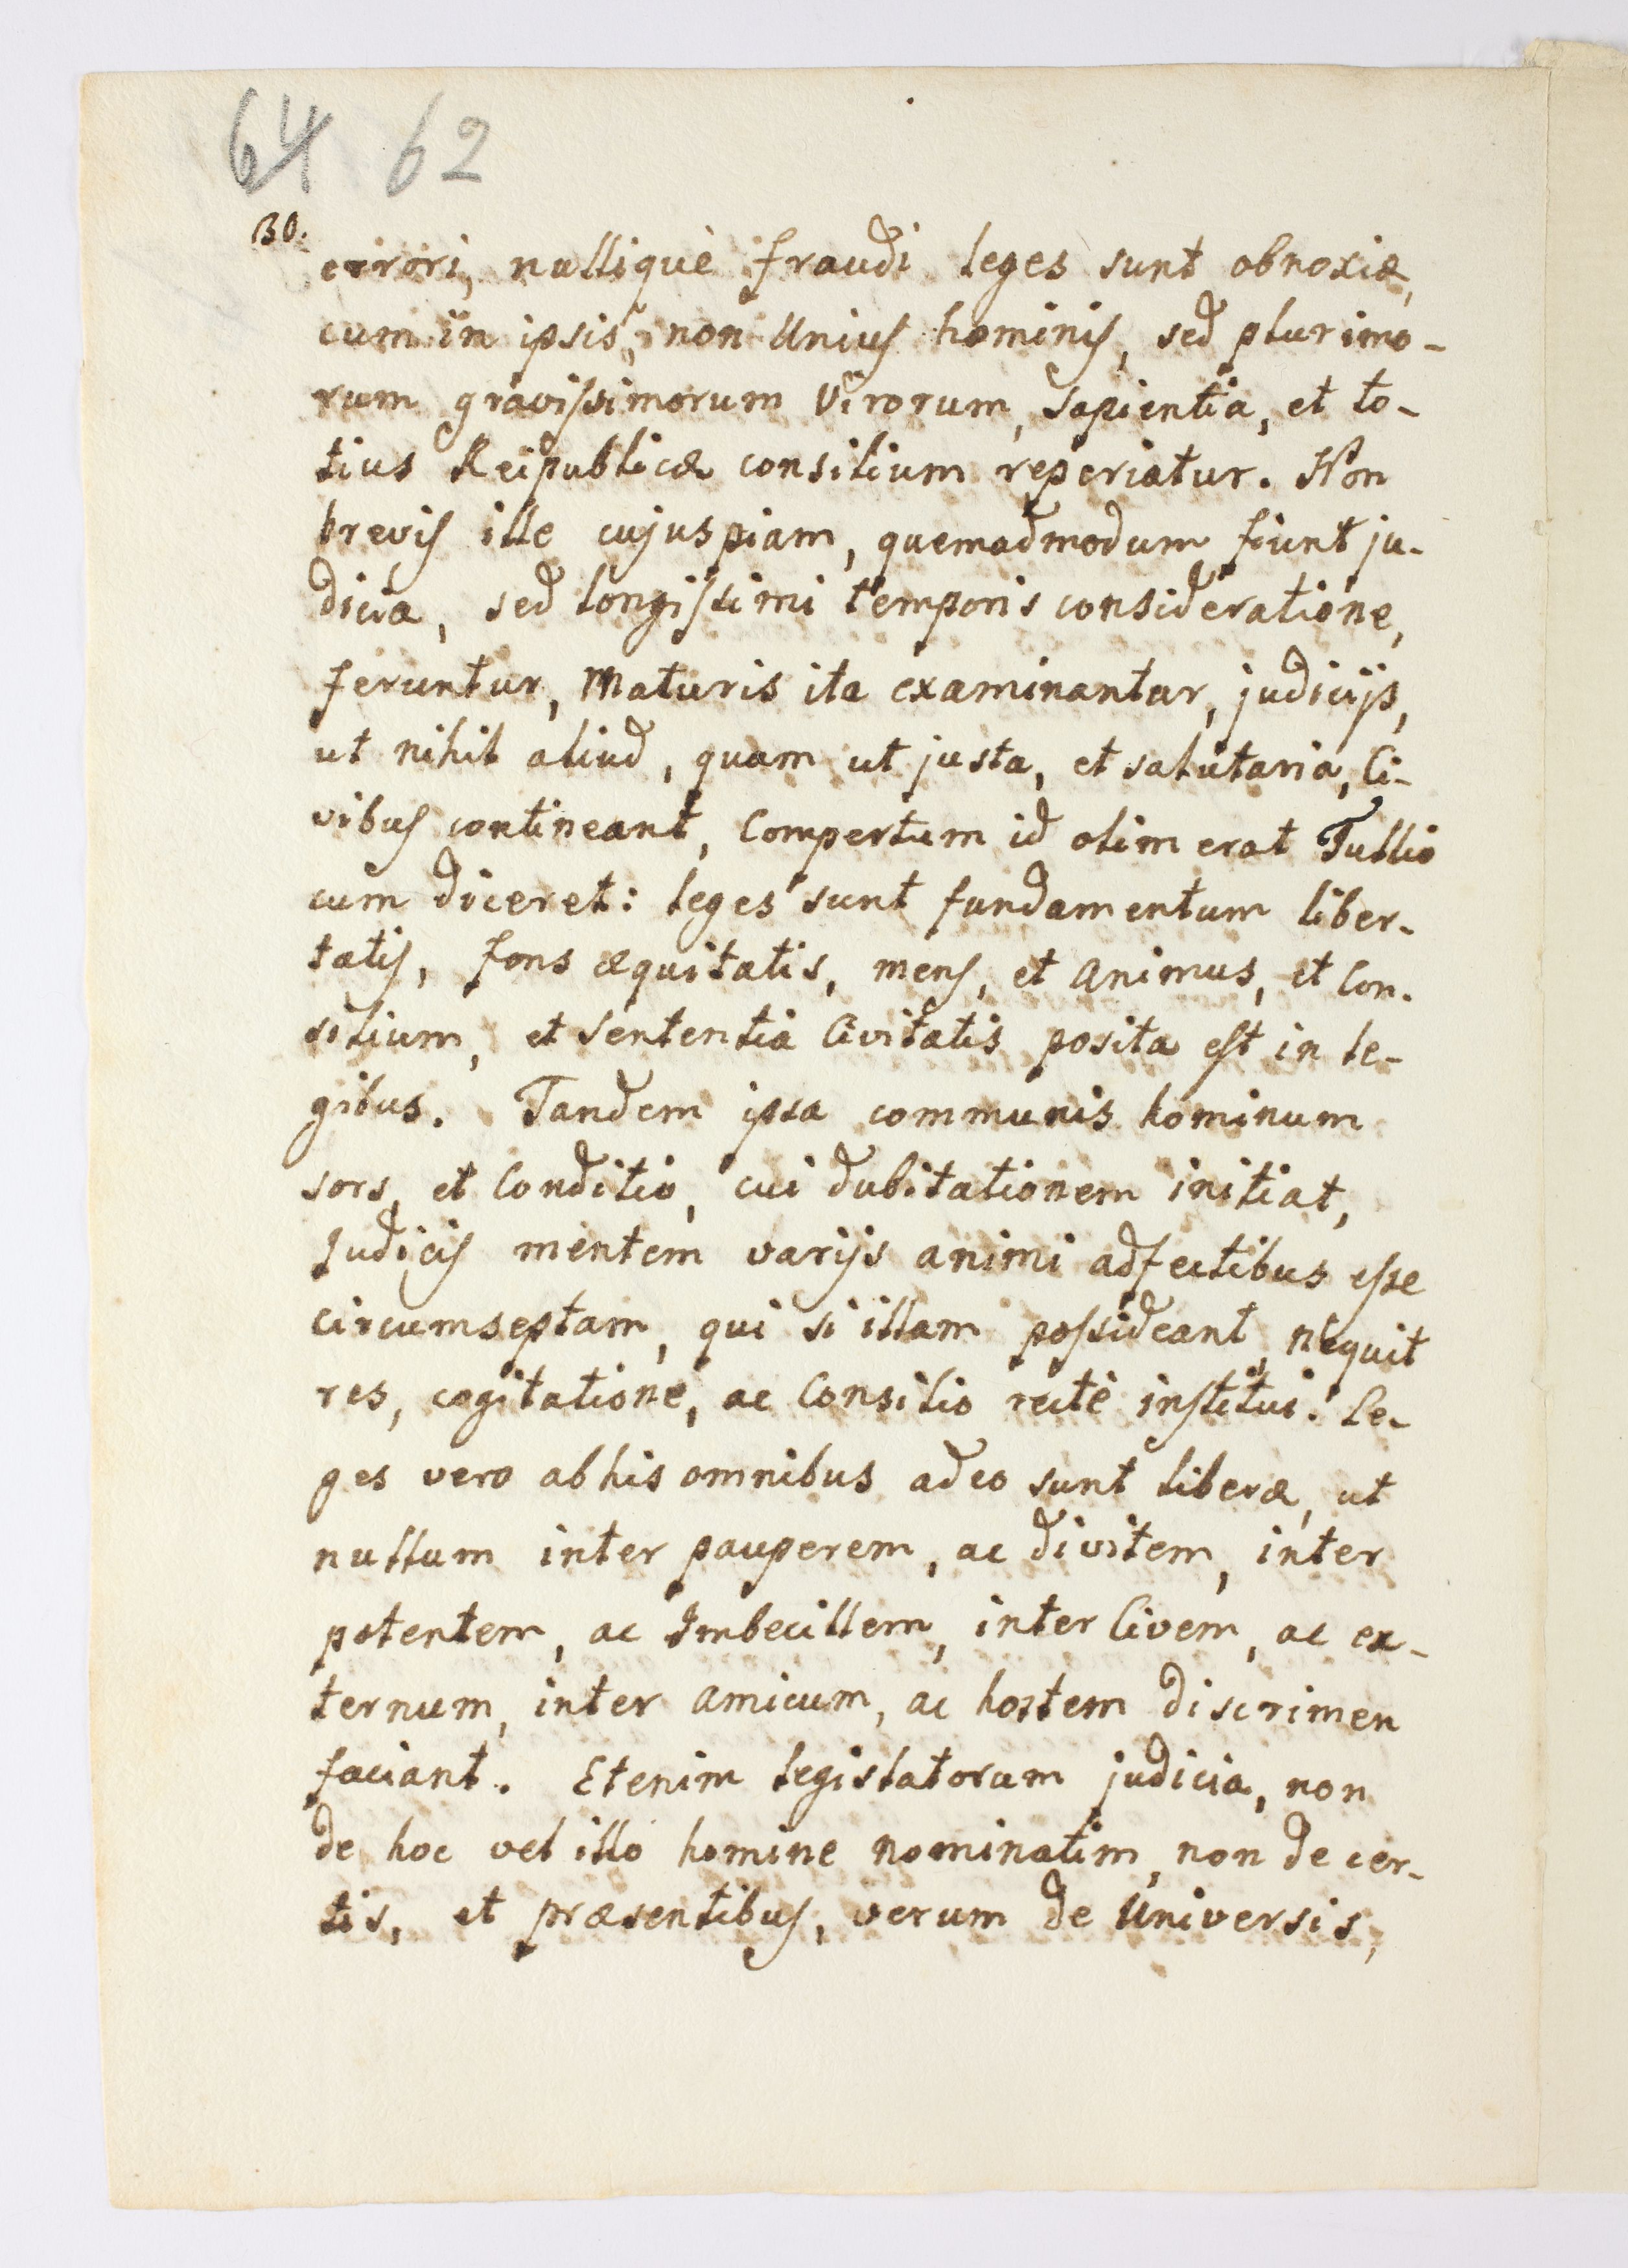 64 62
30.
errori, nulliquè fraudi leges sunt obnoxiæ,
cum in ipsis, non Unius hominis, sed plurimo-
rum gravissimorum Virorum, sapientia, et to-
tius Reipublicæ consilium reperiatur. Non
brevis ille cujuspiam, quemadmodum fiunt ju-
dicia, sed longissimi temporis consideratione,
feruntur, Maturis ita examinantur, judicijs,
ut nihil aliud, quam ut justa, et salutaria, Ci-
vibus contineant, Compertum id olim erat Tullio
cum diceret: leges sunt fundamentum liber-
tatis, fons æquitatis, mens, et Animus, et Con-
silium, et Sententia Civitatis posita est in le-
gibus. Tandem ipsa communis hominum
sors, et Conditio, cui dubitationem initiat,
Judicis mentem varijs animi adfectibus esse
circumseptam, qui si illam possideant, nequit
res, cogitatione, ac Consilio rectè institui. Le-
ges vero ab his omnibus adeo sunt liberæ, ut
nullum inter pauperem, ac divitem, inter
potentem, ac Imbecillem, inter Civem, ac ex-
ternum, inter amicum, ac hostem discrimen
faciant. Etenim legislatorum judicia, non
de hoc vel illo homine nominatim, non de cer-
tis, et præsentibus, verum de Universis,